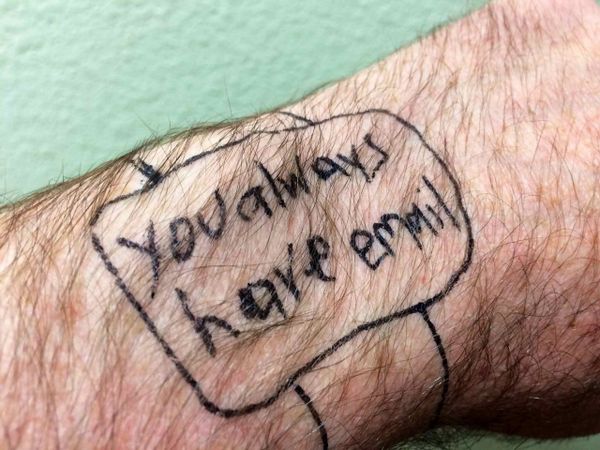 you always
have email